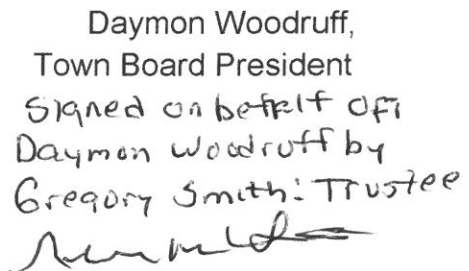 Daymon Woodruff,
Town Board President
Signed on behalf of:
Daymon Woodruff by
Gregory Smith: Trustee